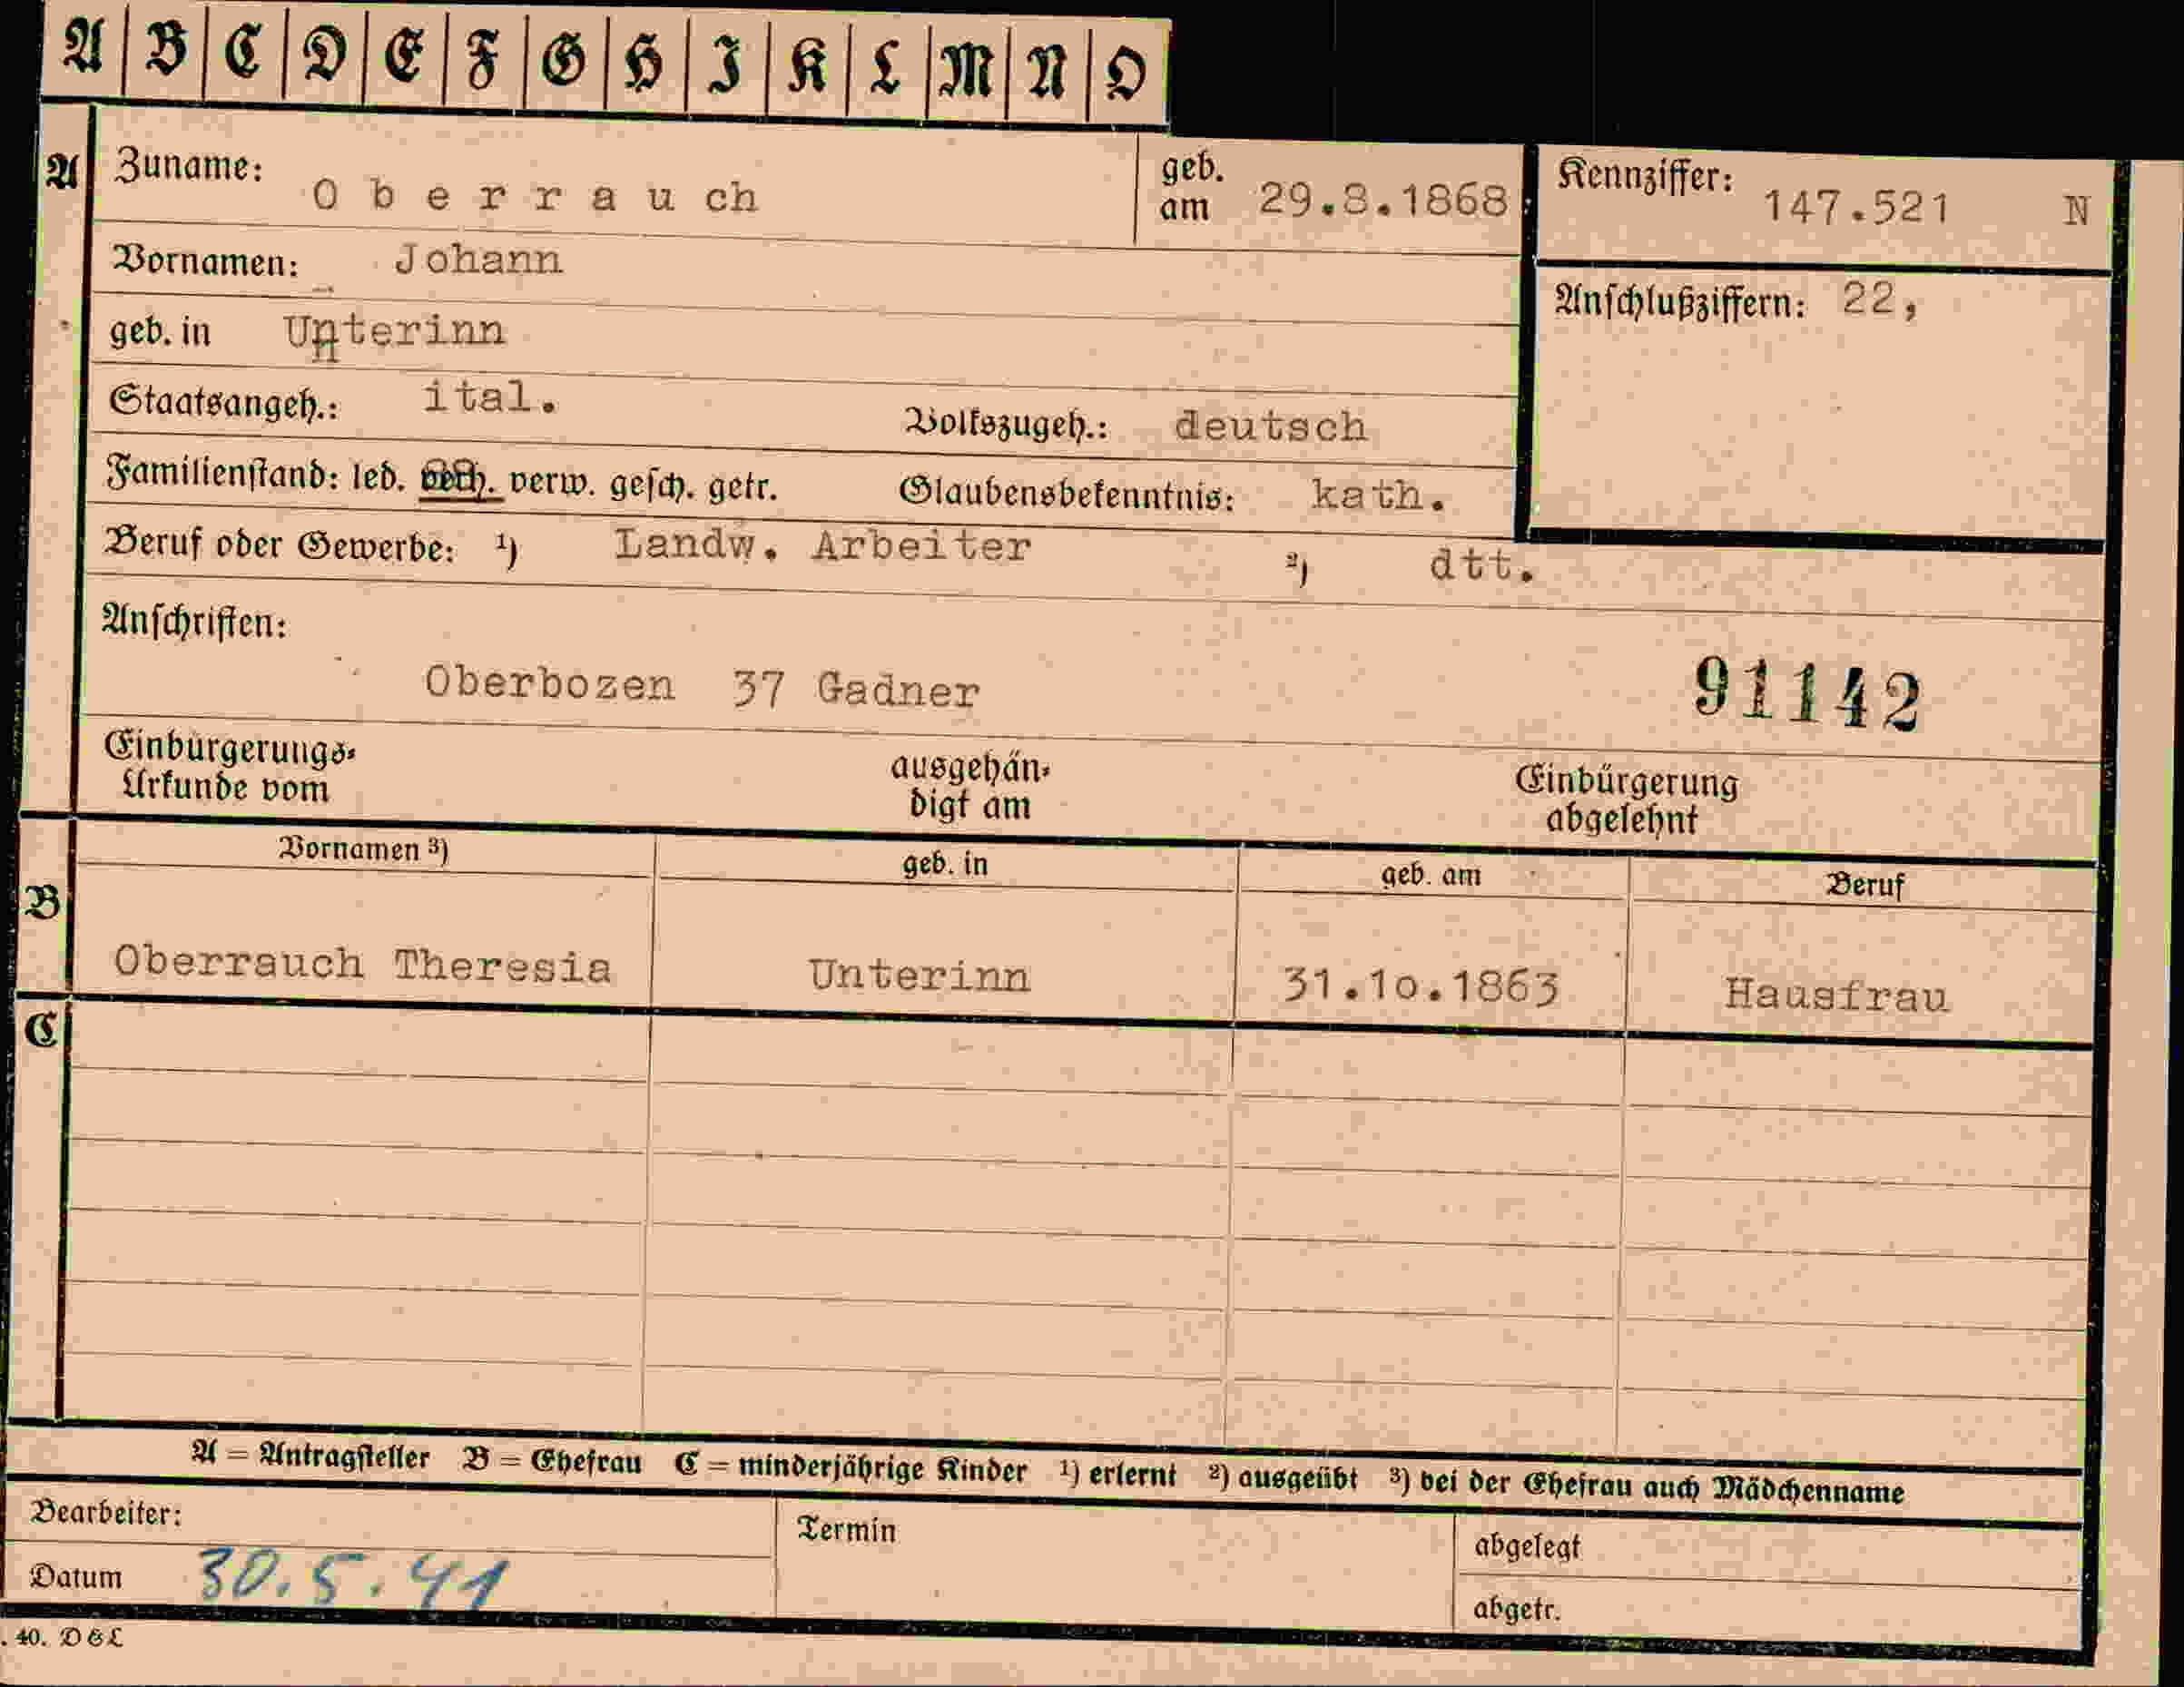 A B C D E F G H I K L M N O
A Zuname: Oberrauch geb. am 29.8.1868 Kennziffer: 147.521 N
Vornamen: Johann
Anschlußziffern: 22,
geb. in Unterinn
Staatsangeh.: ital. Volkszugeh.: deutsch
Familienstand: led. verh. verw. gesch. getr. Glaubensbekenntnis: kath.
Beruf oder Gewerbe: ¹) Landw. Arbeiter ²) dtt.
Anschriften:
Oberbozen 37 Gadner 91142
Einbürgerungs- ausgehän- Einbürgerung
Urkunde vom digt am abgelehnt
Vornamen ³) geb. in geb. am Beruf
B
Oberrauch Theresia Unterinn 31.10.1863 Hausfrau
C
A = Antragsteller B = Ehefrau C = minderjährige Kinder ¹) erlernt ²) ausgeübt ³) bei der Ehefrau auch Mädchenname
Bearbeiter: Termin abgelegt
Datum 30.5.41 abgetr.
. 40. D & L